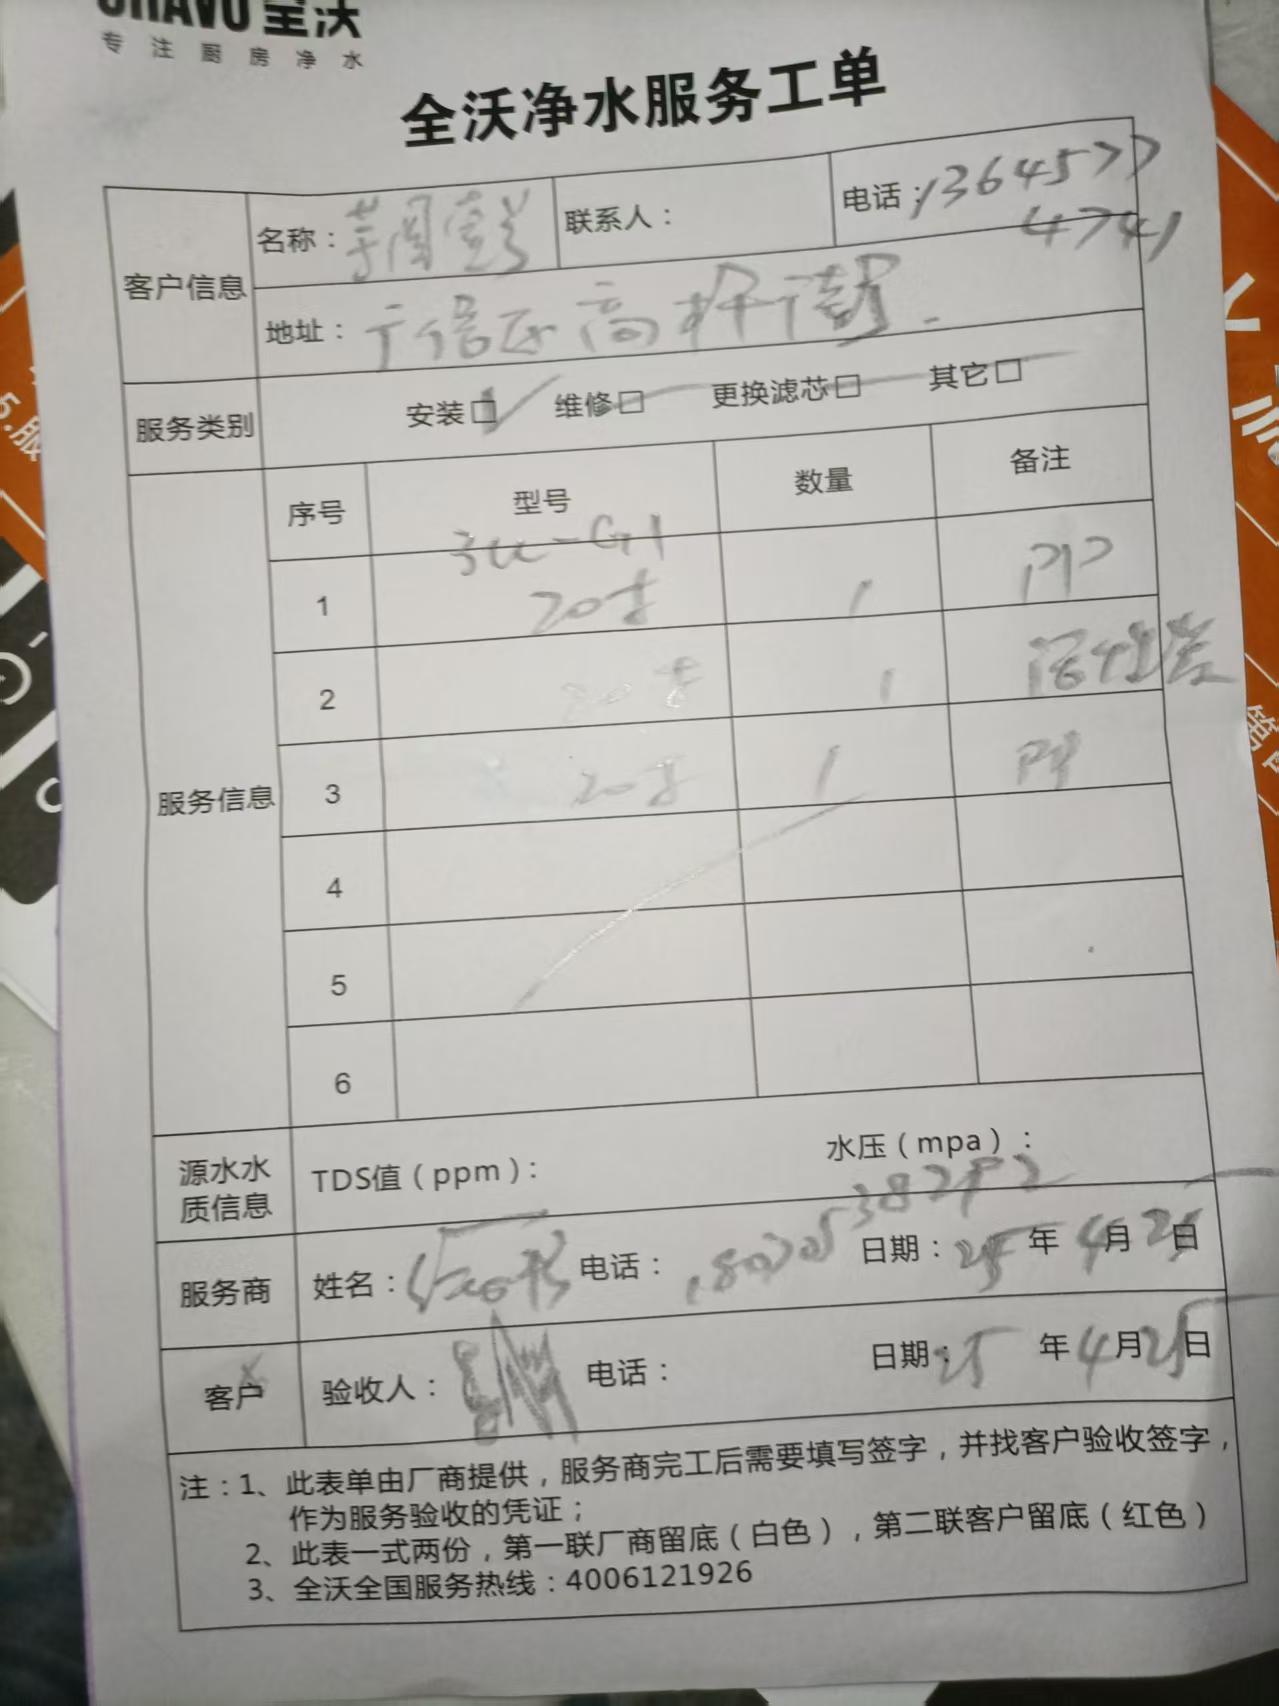 全沃
专注厨房净水
全沃净水服务工单
客户信息
名称：
联系人：
电话：1364577
4741
地址：
服务类别
安装□✓ 维修□ 更换滤芯□ 其它□
服务信息
序号 型号 数量 备注
3u-G1
1 20寸 1 PP
2 20寸 1 活性炭
3 20寸 1 PP
4
5
6
源水水质信息
TDS值（ppm）： 水压（mpa）：
服务商
姓名： 电话： 日期：25年4月25日
客户
验收人： 电话： 日期：25年4月25日
注：1、此表单由厂商提供，服务商完工后需要填写签字，并找客户验收签字，
作为服务验收的凭证；
2、此表一式两份，第一联厂商留底（白色），第二联客户留底（红色）
3、全沃全国服务热线：4006121926